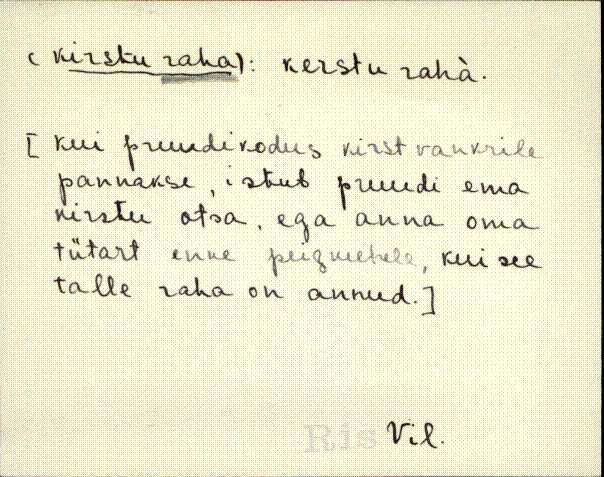 (kirstu raha): kerstu rahà.
[kui pruudikodus kirst vankrile
pannakse, istub pruudi ema
kirstu otsa, ega anna oma
tütart enne peigmehele, kui see
talle raha on annud.]
Ris Vil.